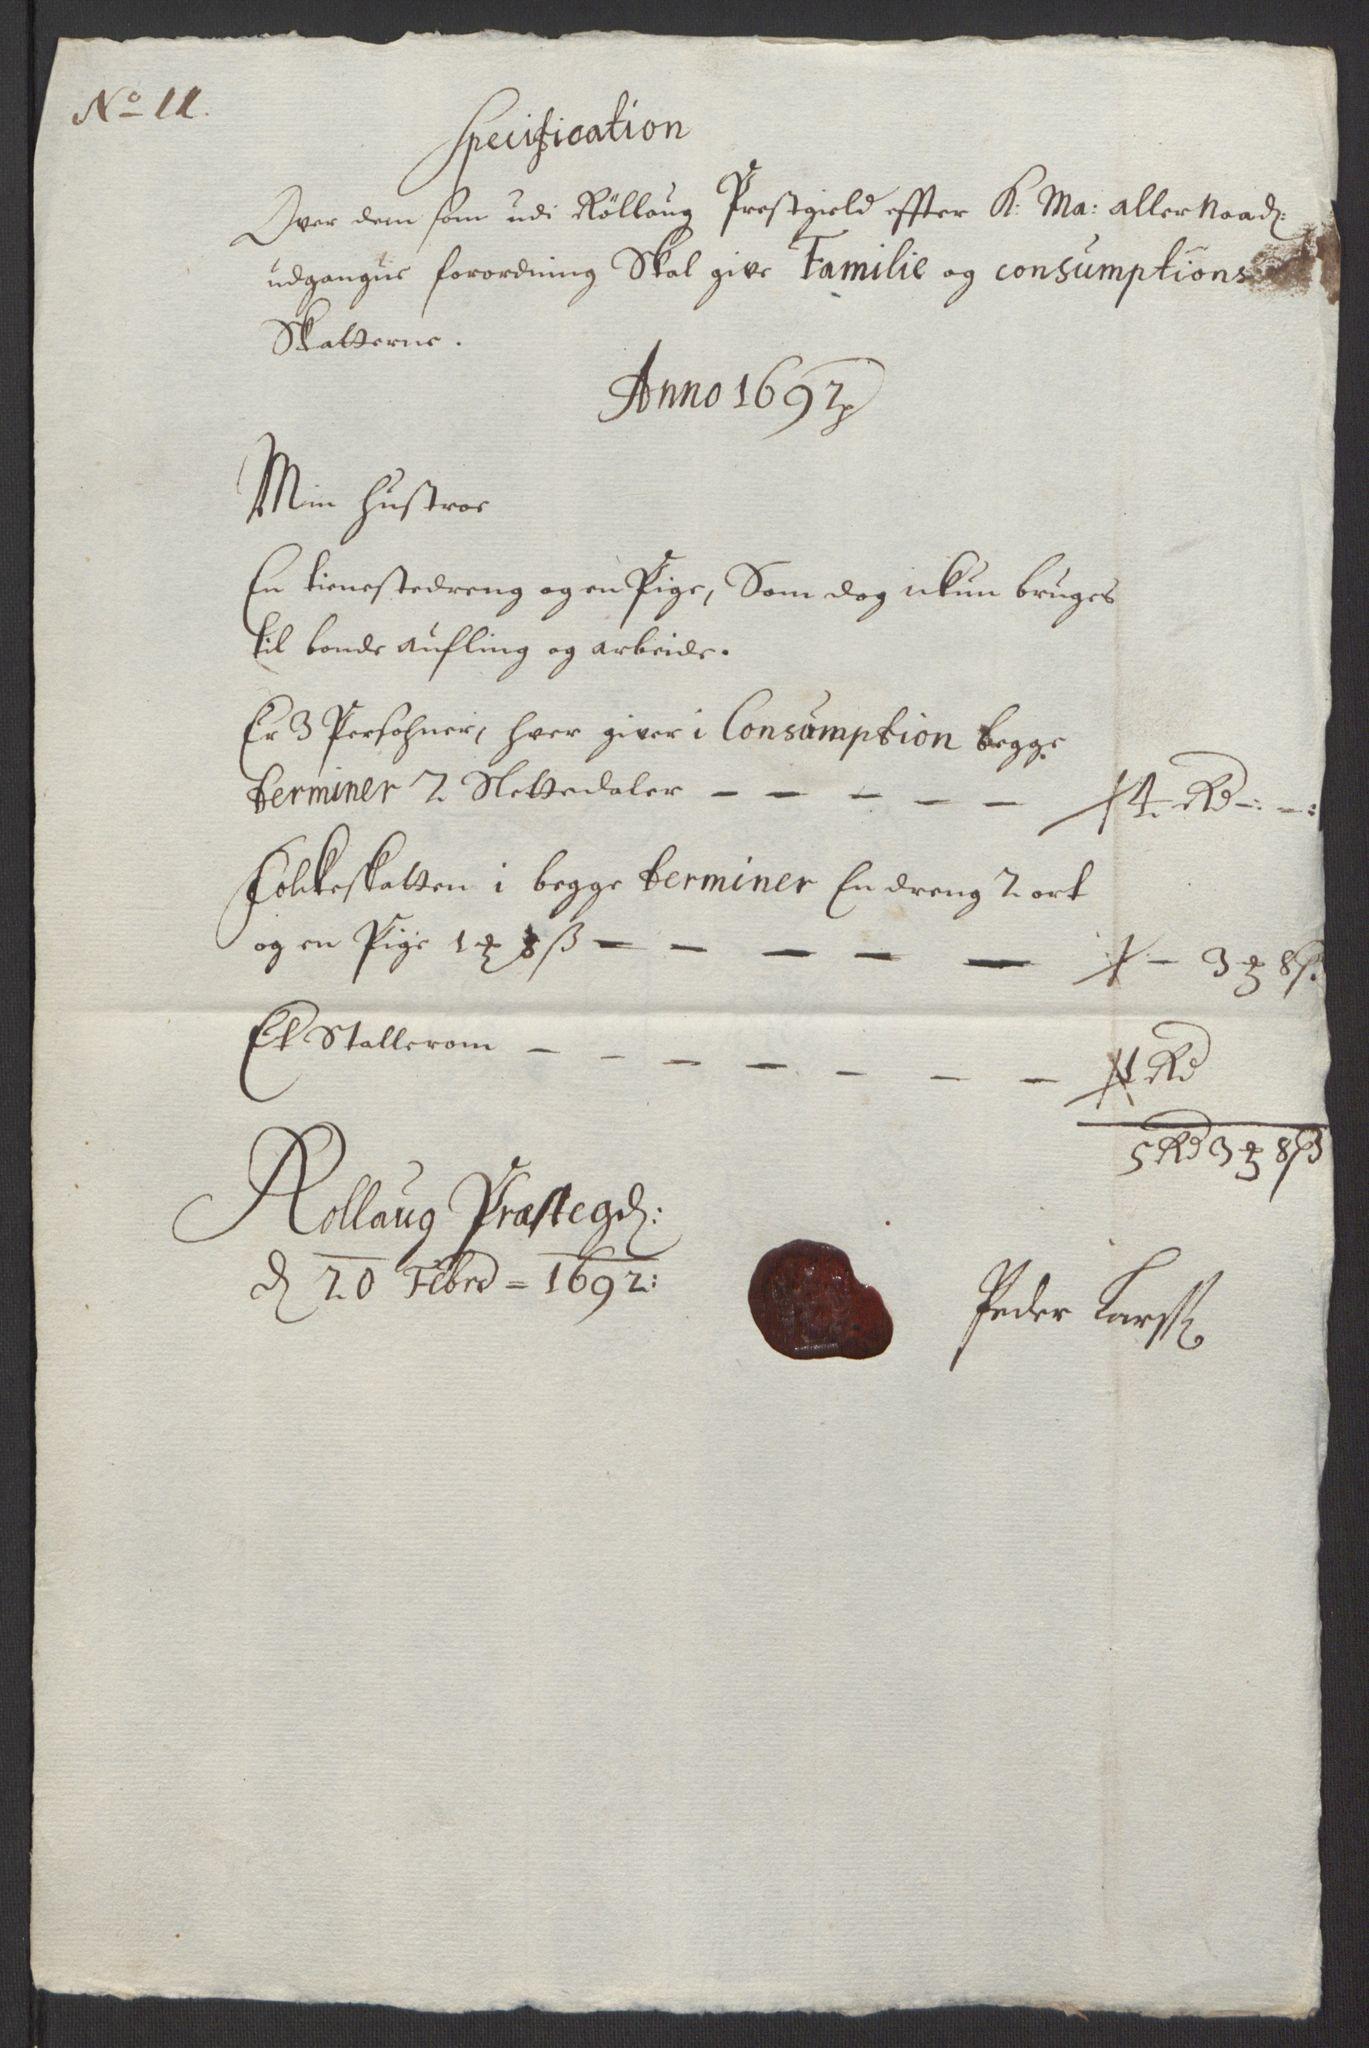 No 11.
Specification
Over dem som udi Rollaug Prestgield effter K: Ma: aller Naad:
udgangne forordning Skal give Familie og consumptions
Skatterne.
Anno 1692
Min Hustroe
En tienestedreng og en Pige, Som dog ickun bruges
til bonde aufling og arbeide.
Er 3 Persohner, hver giver i Consumption begge
terminer 2 Slettedaler — — — — — 4 Rd -:-:
Folkeskatten i begge terminer En dreng 2 ort
og en Pige 1 ort 8 ß — — — — — 3 ort 8 ß.
Et Stallerom — — — — — — — 1 Rd
5 Rd 3 ort 8 ß
Rollaug Præstegd:
d 20 Febr = 1692:
Peder Larss